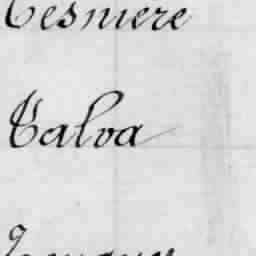 Tesniere
Talva